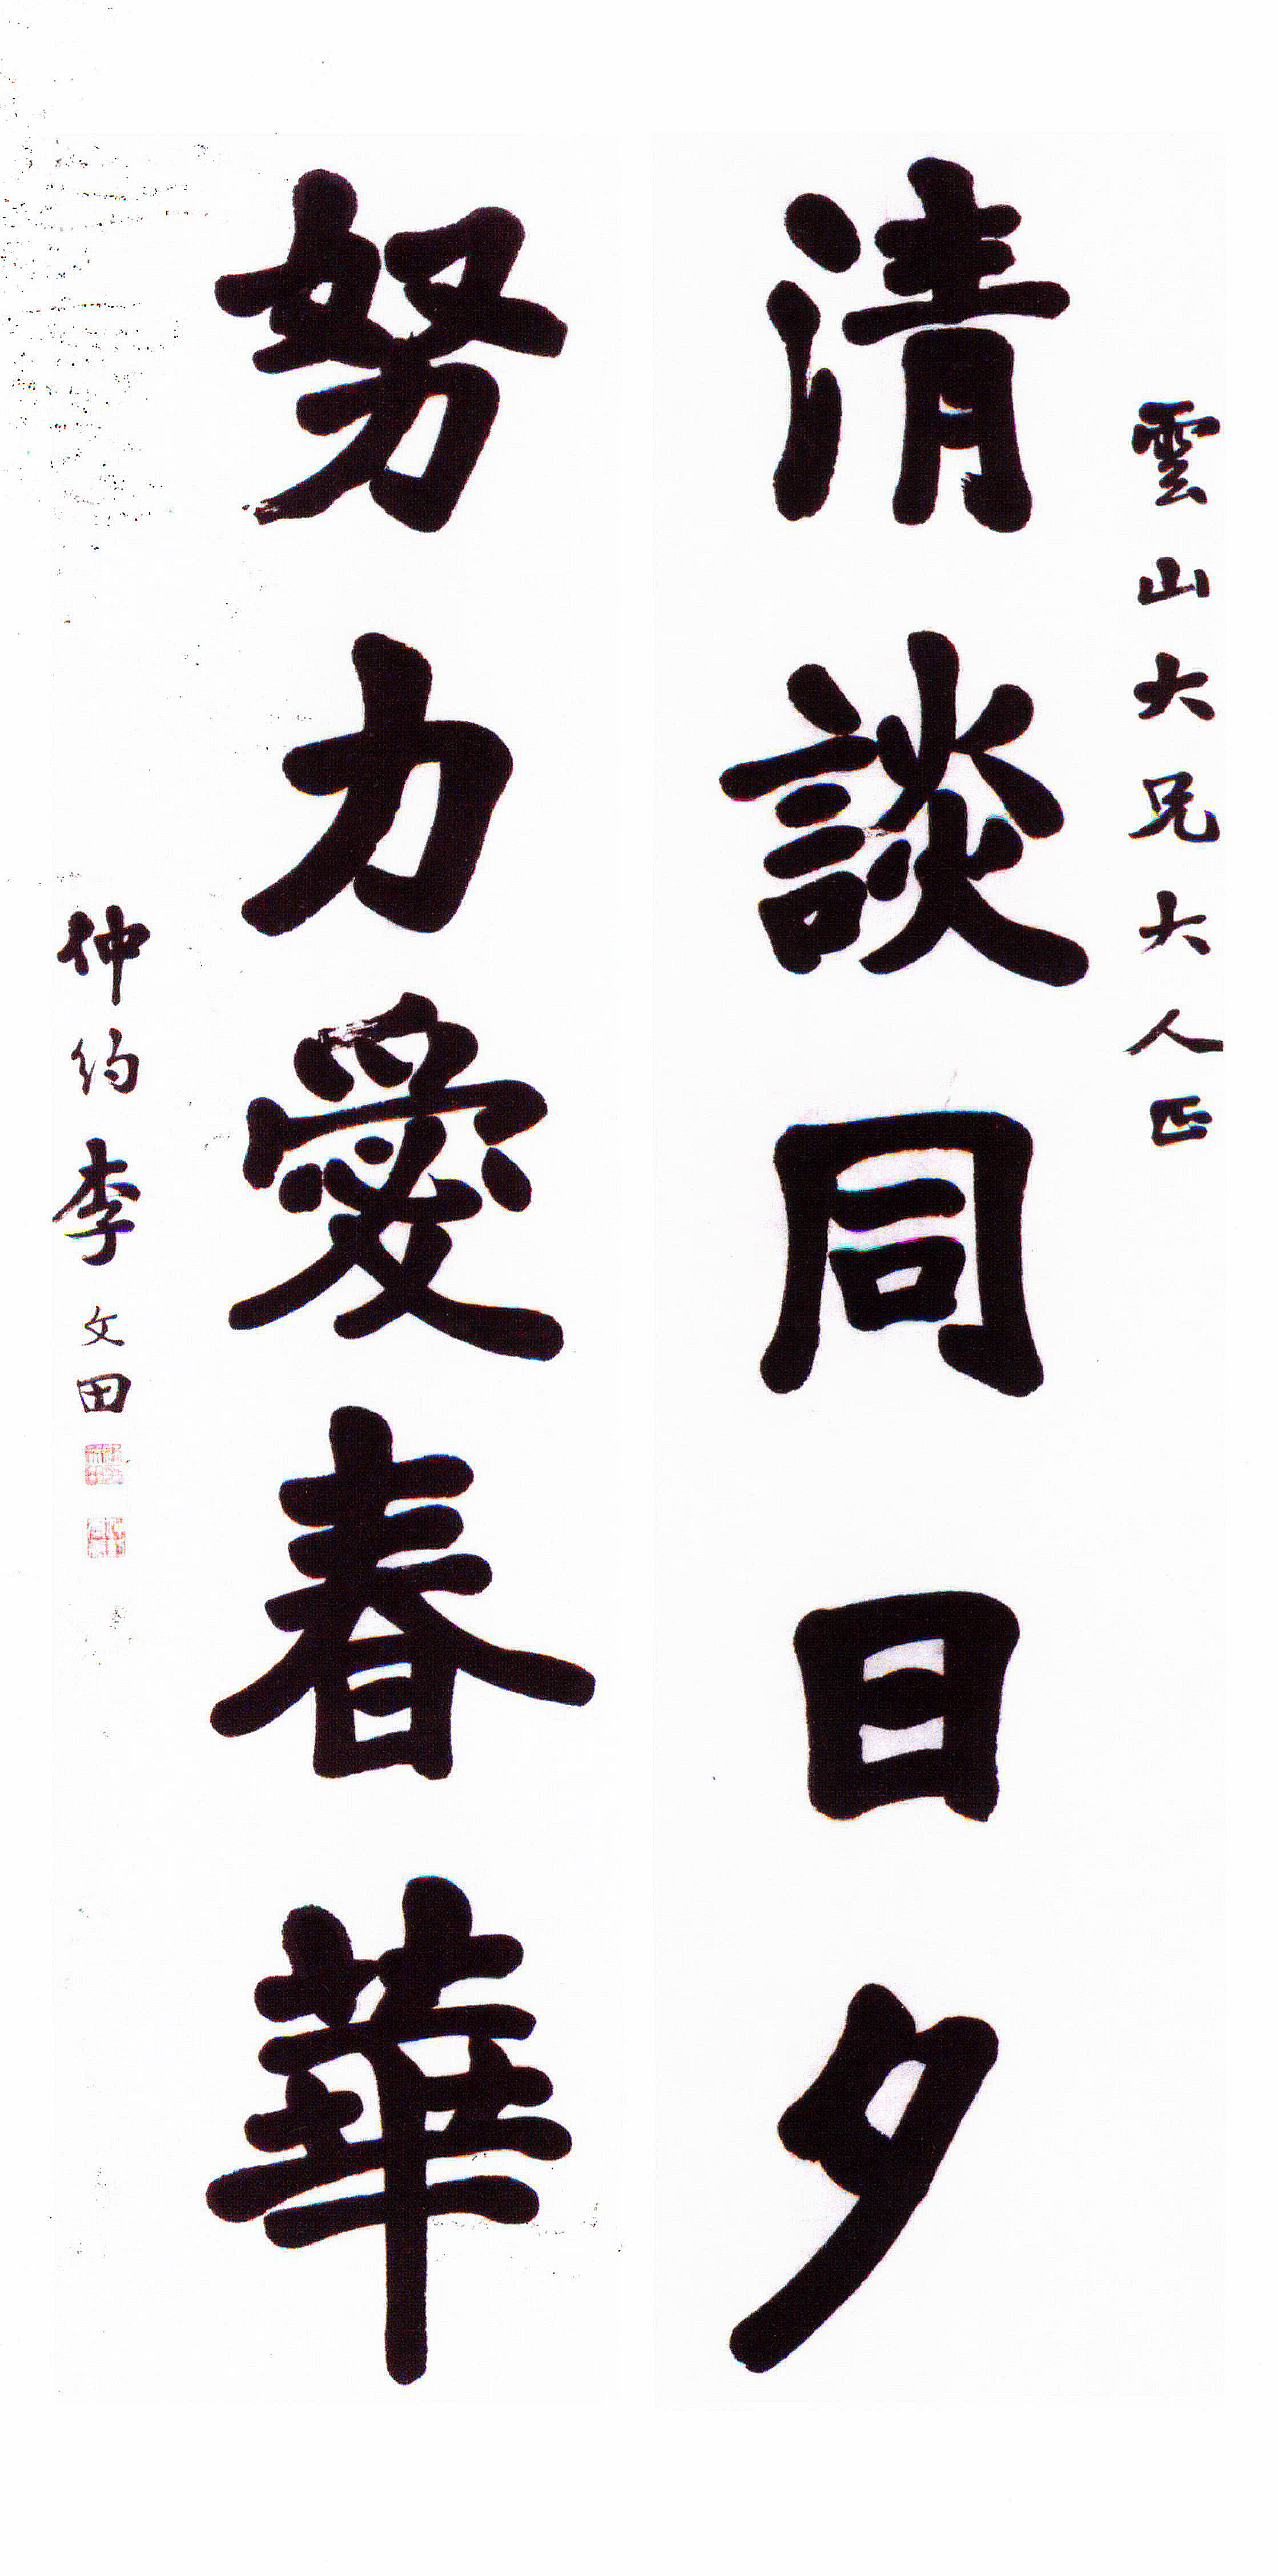 雲山大兄大人正
清談同日夕
努力愛春華
仲約李文田